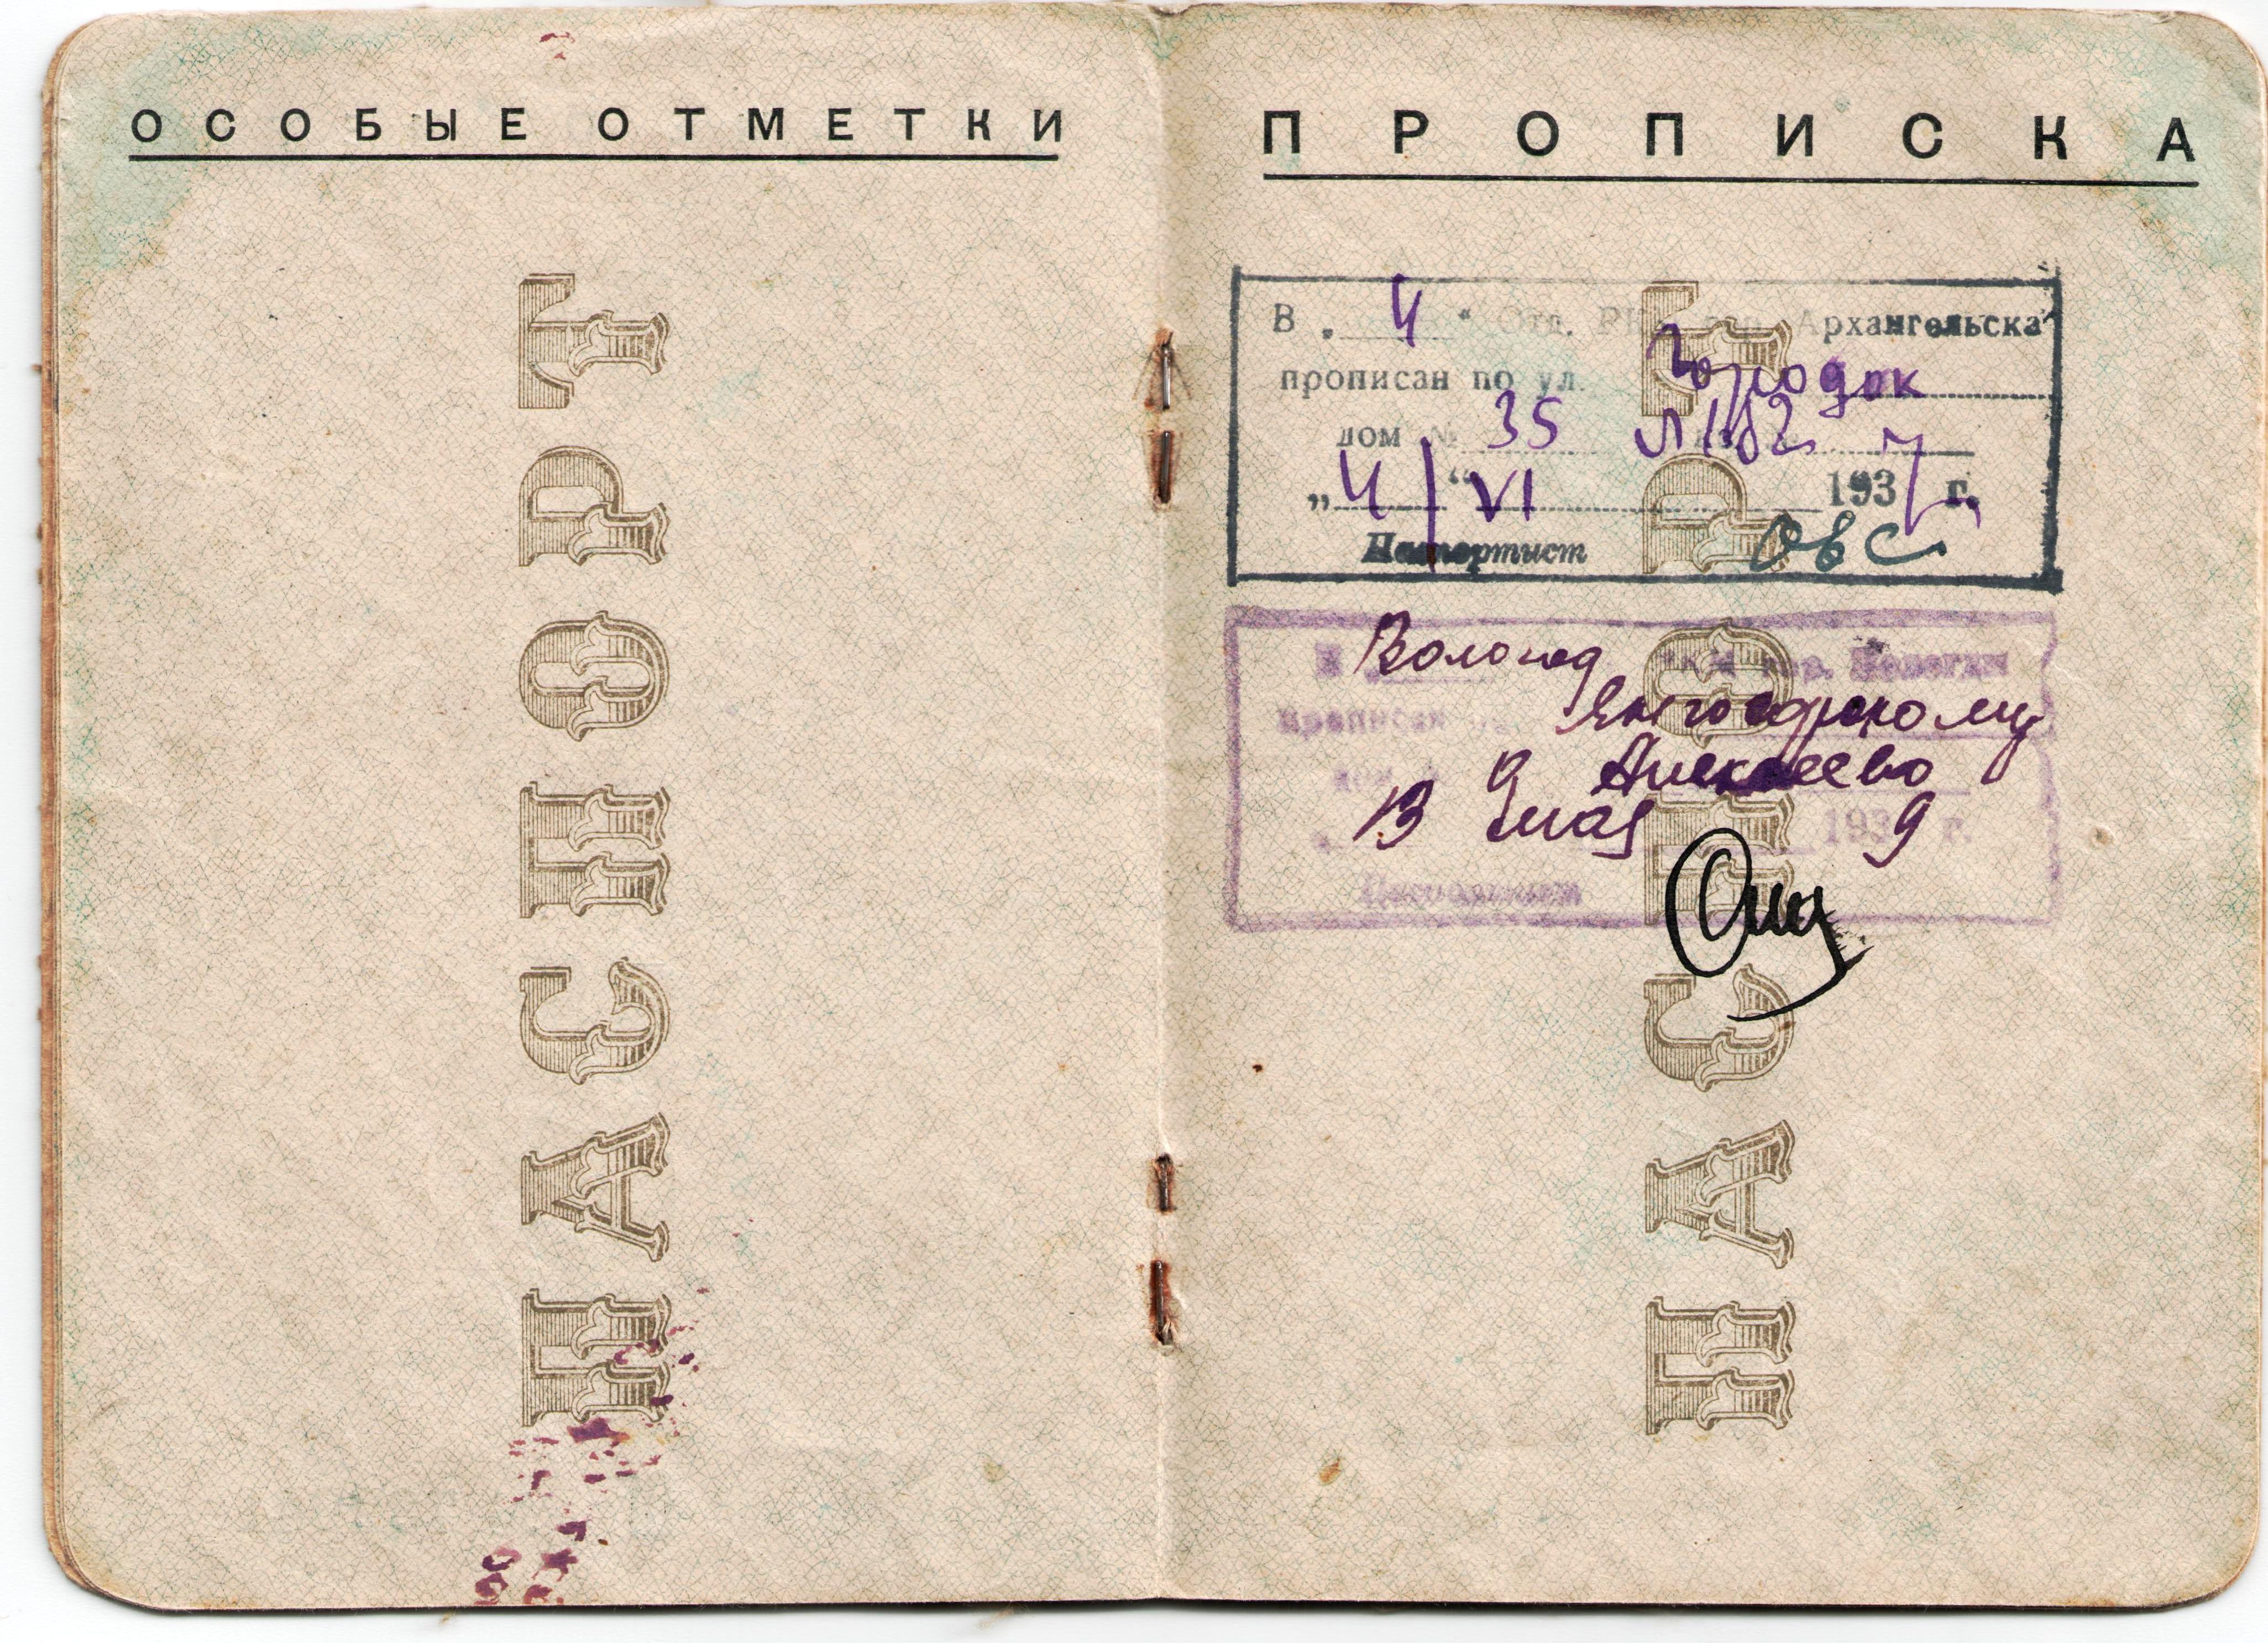 ОСОБЫЕ ОТМЕТКИ
ПАСПОРТ
ПРОПИСКА
ПАСПОРТ
В „ 4 “ Отд. РК гор. Архангельска
прописан по ул. Городок
дом № 35
„ 4 “ VI 1937 г.
Паспортист
Вологод гор. Вологды
прописан
Алексеево
13 мая 1939 г.
Паспортист